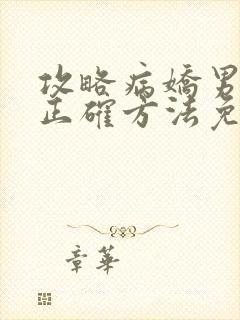 攻略病嬌男
正確方法免
章華